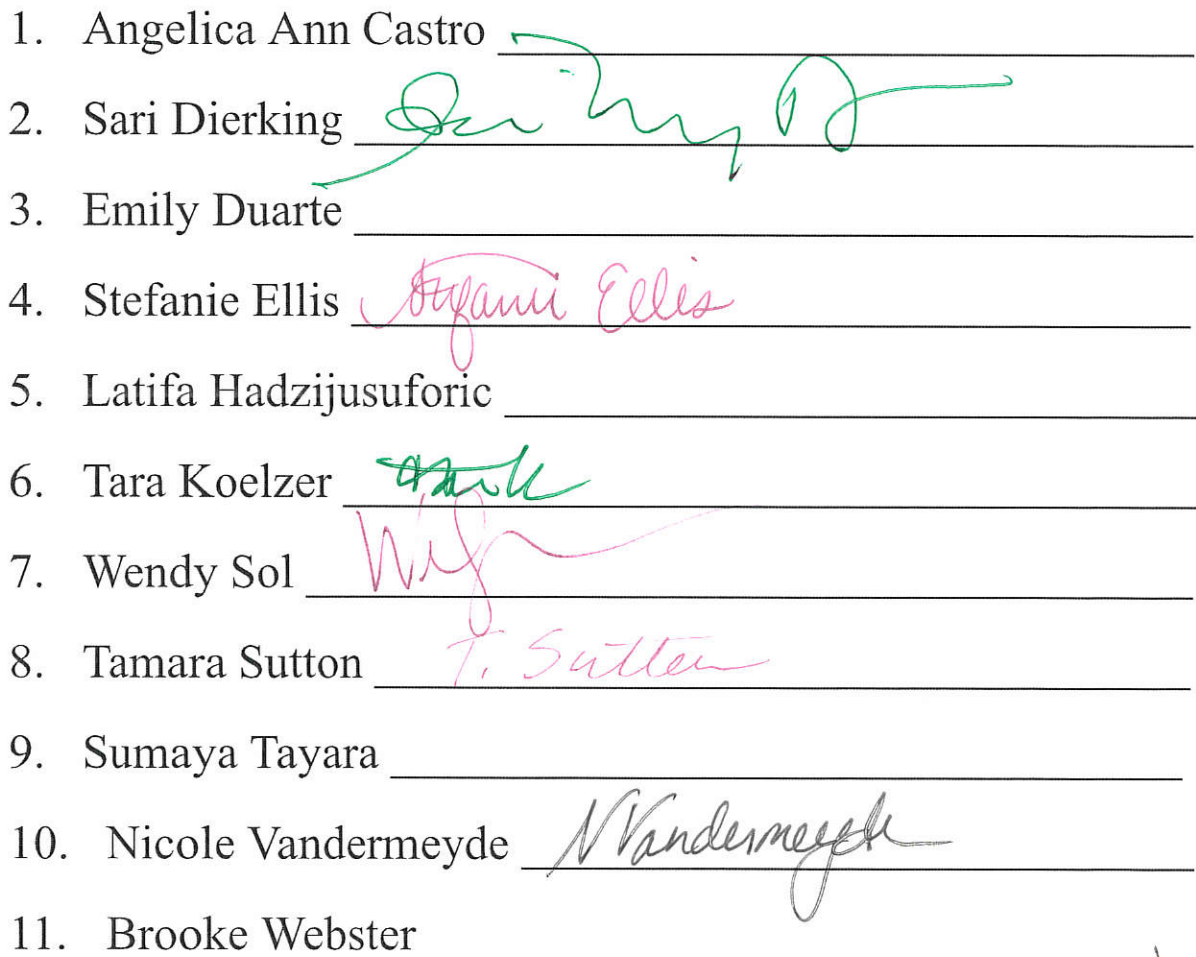 1. Angelica Ann Castro
2. Sari Dierking
3. Emily Duarte
4. Stefanie Ellis Stefanie Ellis
5. Latifa Hadzijusuforic
6. Tara Koelzer
7. Wendy Sol
8. Tamara Sutton T. Sutton
9. Sumaya Tayara
10. Nicole Vandermeyde NVandermeyde
11. Brooke Webster